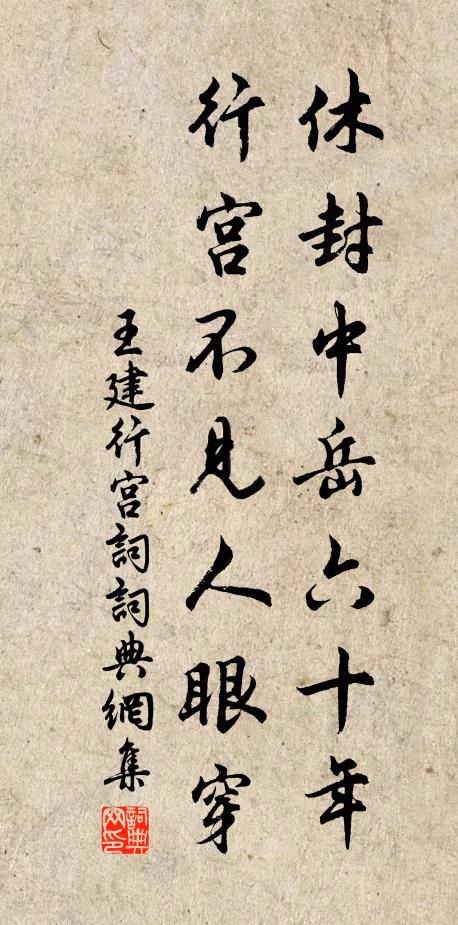 休封中岳六十年
行宫不见人眼穿
王建行宫詞詞典網集
詞典网印